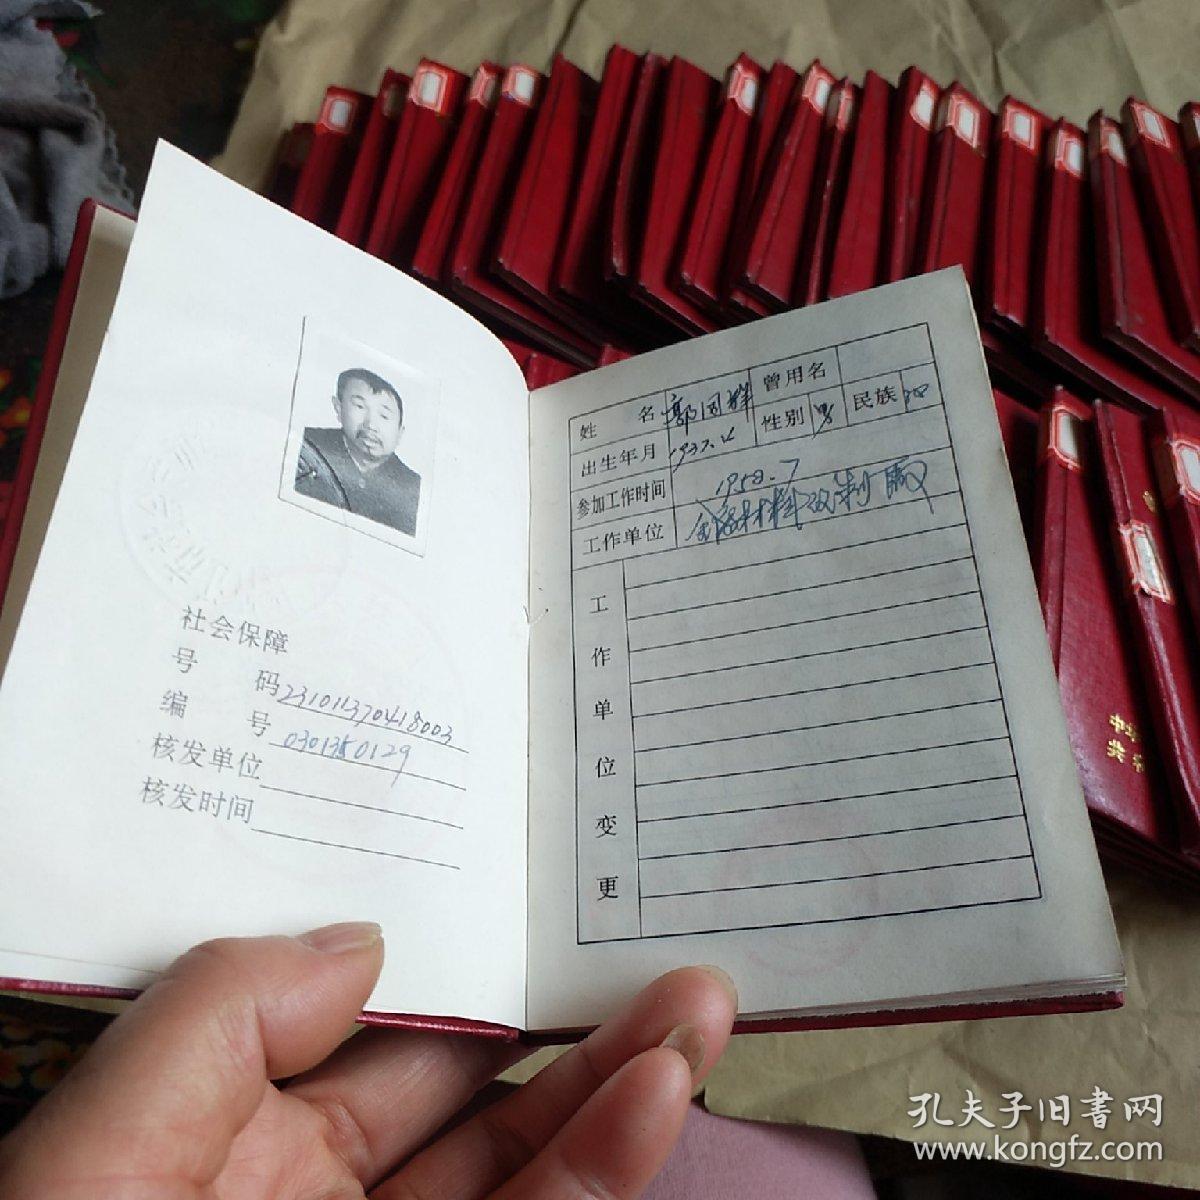 社会保障
号 码 231011370418003
编 号 0301350129
核发单位
核发时间
姓 名 郭国祥 曾用名
出生年月 1937.4 性别 男 民族 汉
参加工作时间 1958.7
工作单位
工作单位变更
中华
共和
孔夫子旧書网
www.kongfz.com